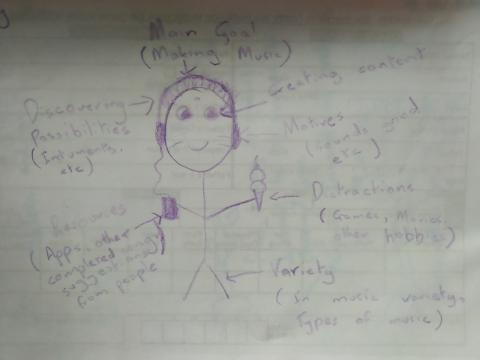 Main Goal
(Making Music)
Creating content
Discovering
Possibilities
(Intruments,
etc)
Motives
(sounds good
etc)
Distractions
(Games, Movies,
other hobbies)
Resources
(Apps, other
completed songs,
suggestions
from people
Variety
(In music variety,
Types of music)